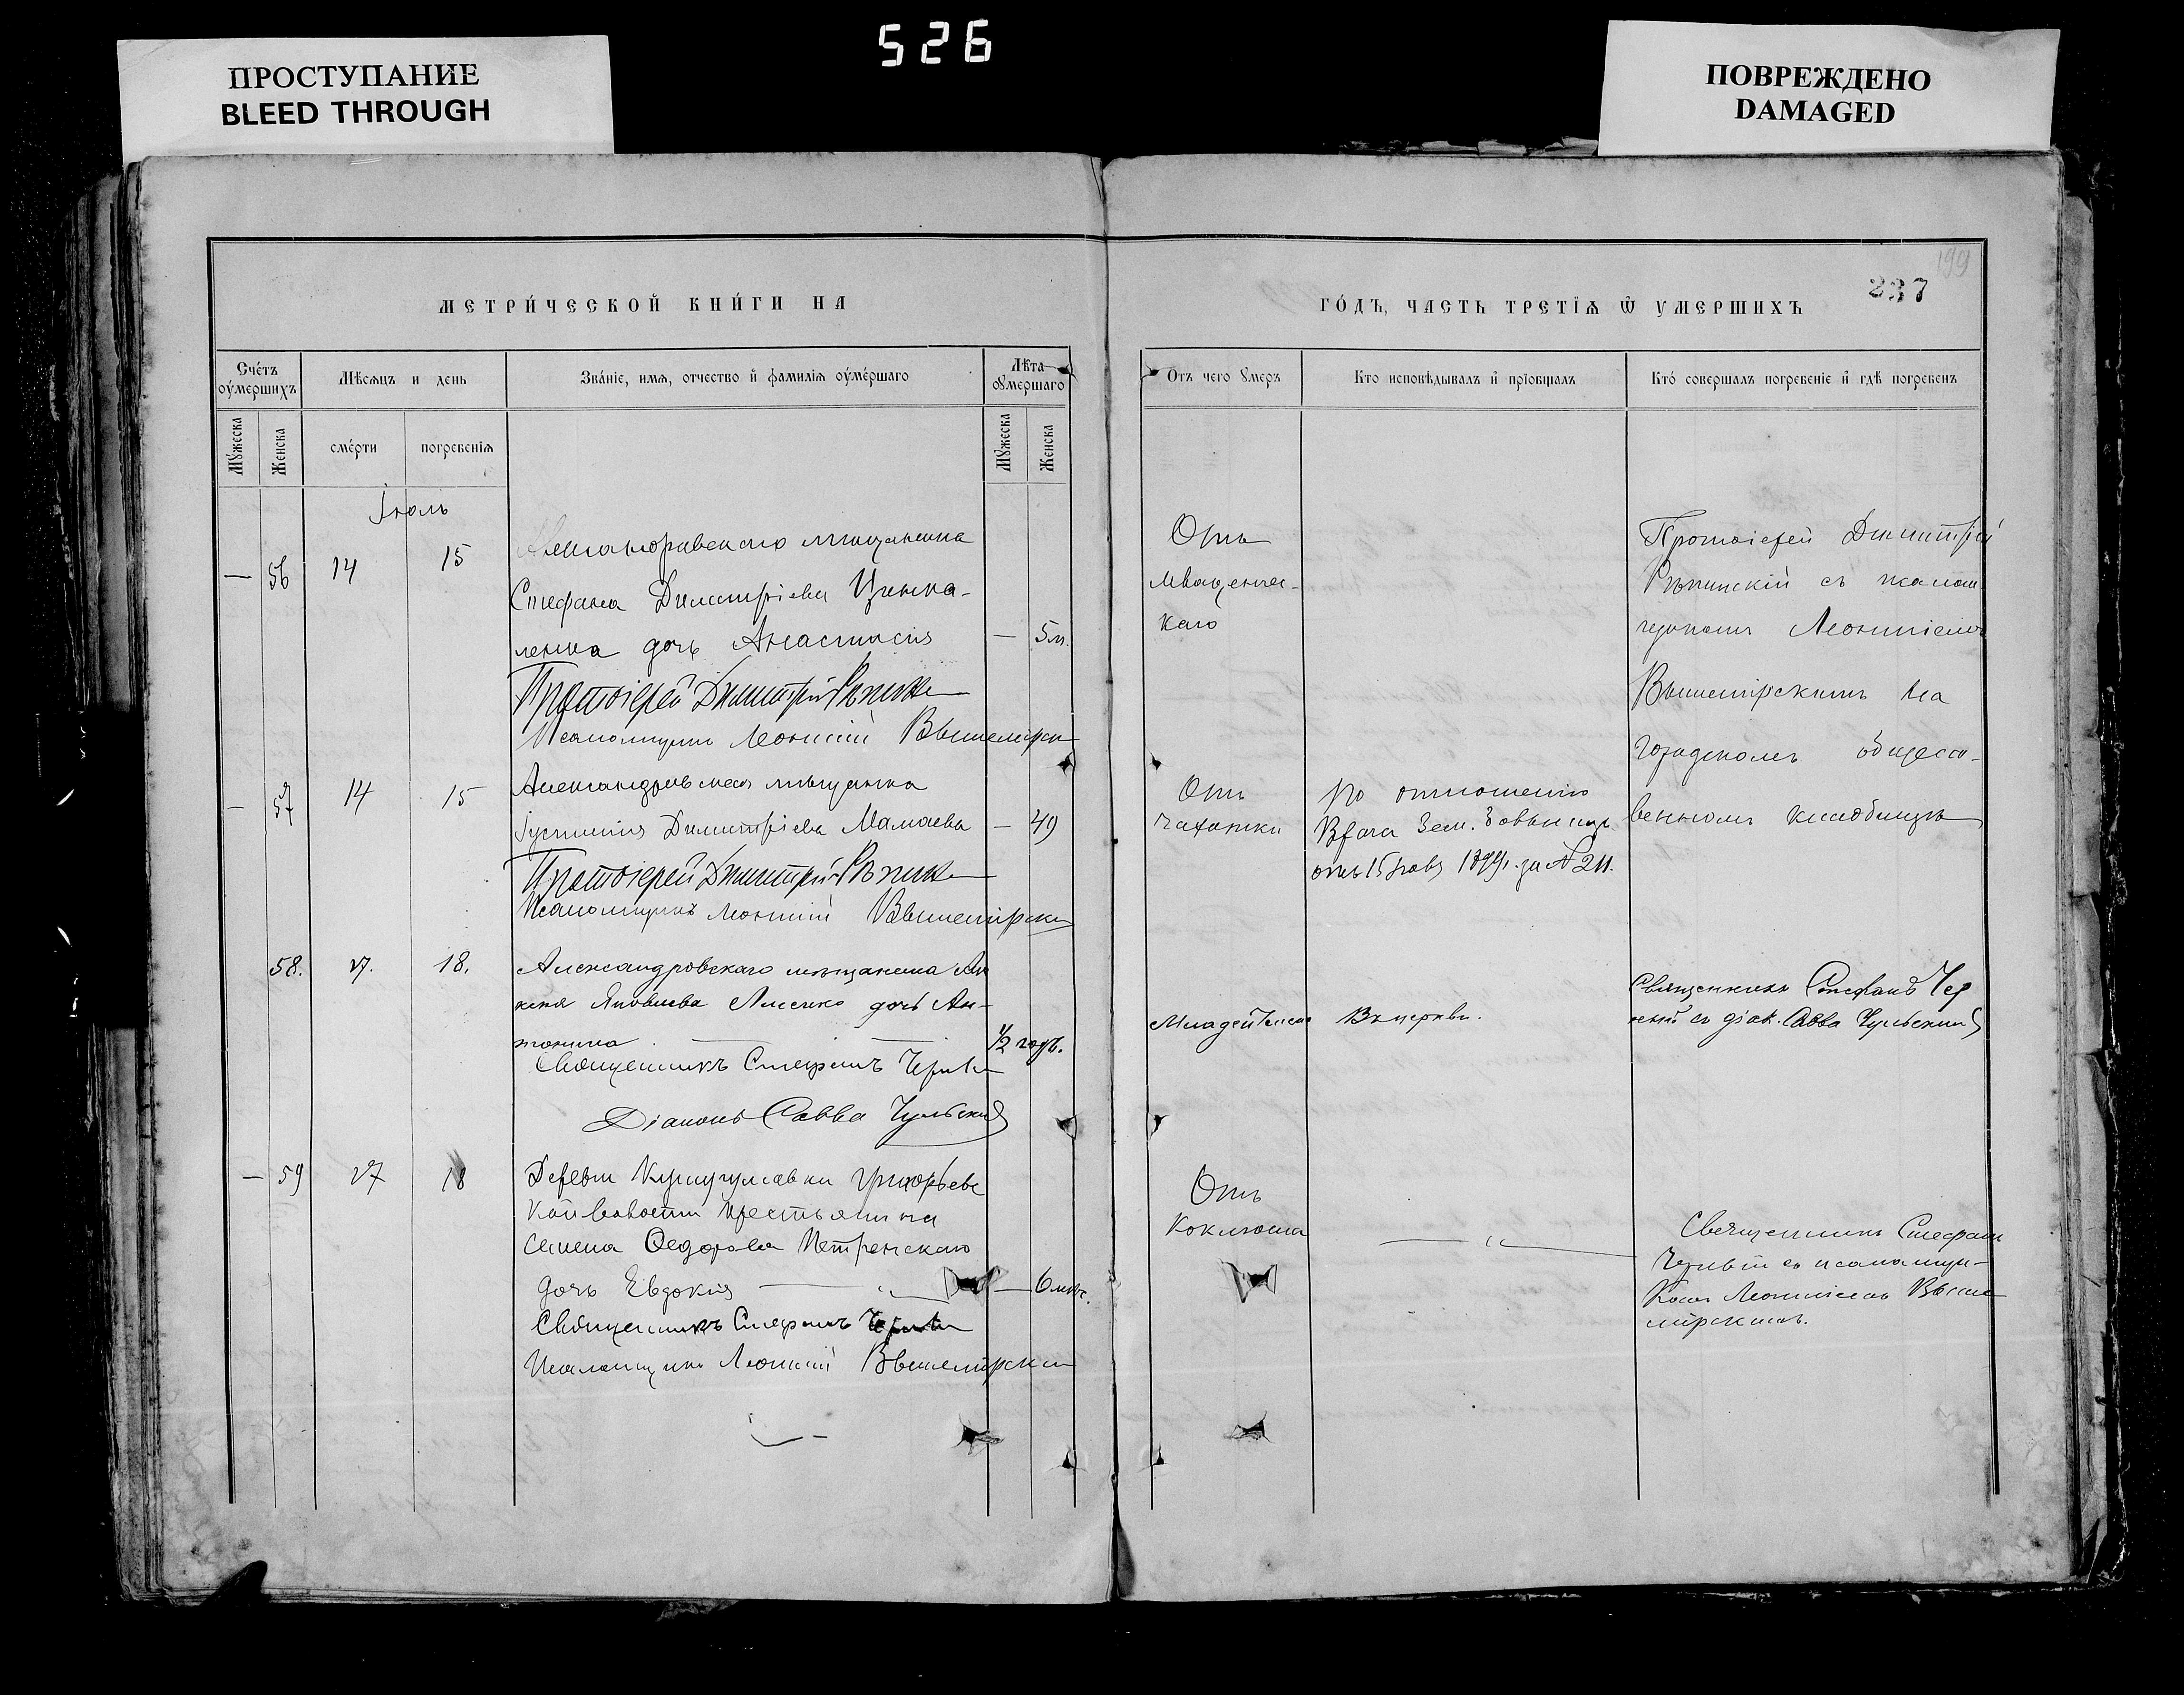 ПРОСТУПАНИЕ
BLEED THROUGH
526
ПОВРЕЖДЕНО
DAMAGED
199
237
МЕТРИ́ЧЕСКОЙ КНИ́ГИ НА
ГО́ДЪ, ЧАСТЬ ТРЕТІѦ Ѿ УМЕРШИХЪ
Сче́тъ оу́мершихъ
Мѣсѧцъ и день
Зва́ніе, имѧ, отчество и҆ фамиліѧ оу҆ме́ршаго
Лѣта ꙋмершаго
Мꙋ́жеска
Женска
сме́рти
погребеніѧ
Мꙋжеска
Женска
Отъ чего ꙋмеръ
Кто исповѣдывалъ и҆ прїобщалъ
Кто́ совершалъ погребеніе и҆ гдѣ погребенъ
Іюль
— 56 14 15
Александровскаго мѣщанина
Стефана Димитріева Цинка-
ленка дочь Анастасія — 5 м.
Протоіерей Димитрій Рѣпик
Псаломщикъ Леонтій Вышемірск
От
младенчес-
каго
Протоіерей Димитрій
Рѣпинскій съ псалом-
щикомъ Леонтіемъ
Вышемірскимъ на
городскомъ общест-
венномъ кладбищѣ
— 57 14 15
Александровская мѣщанка
Іустинія Димитріева Мамаева — 49
Протоіерей Димитрій Рѣпик
Псаломщикъ Леонтій Вышемірски
Отъ
чахотки
По отношенію
Врача Зем. больницы
отъ 15 1899 г. за № 211.
58. 17. 18.
Александровскаго мѣщанина Ан
Яковлева Лисенко дочь Ан-
тонина — — 1/2 годъ.
Священникъ Стефанъ Черн
Діаконъ Савва Чульскій
Младенческ
Священникъ Стефанъ Чер
ный съ діак. Савва Чульскимъ
— 59 17 18
Деревни Кушугумовки Григорьевс
кой волости крестьянина
Семена Ѳедорова Петренскаго
дочь Евдокія — 6 мѣс.
Священникъ Стефанъ Черн
Псаломщикъ Леонтій Вышемірски
Отъ
Коклюша
— " —
Священникъ Стефанъ
Черный съ псаломщи-
комъ Леонтіемъ Выше
мірскимъ.